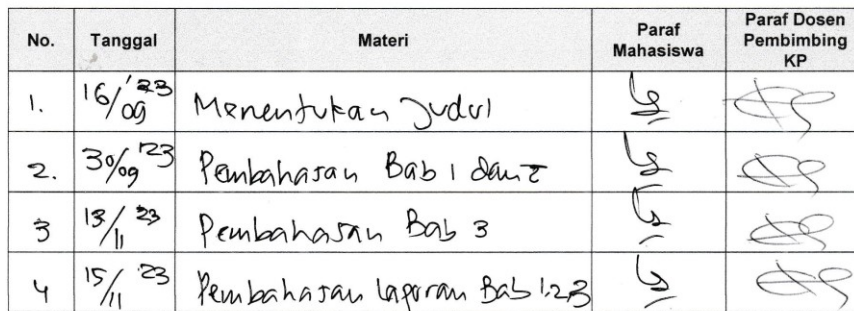 No. Tanggal Materi Paraf Mahasiswa Paraf Dosen Pembimbing KP
1. 16/09 '23 Menentukan Judul
2. 30/09 '23 Pembahasan Bab 1 dan 2
3 13/11 23 Pembahasan Bab 3
4 15/11 23 Pembahasan laporan Bab 1.2.3